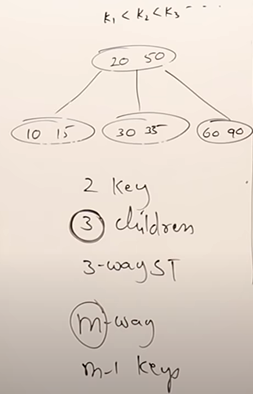 K₁ < K₂ < K₃ - - -
20 50
10 15 30 35 60 90
2 key
3 children
3-way ST
m-way
m-1 keys